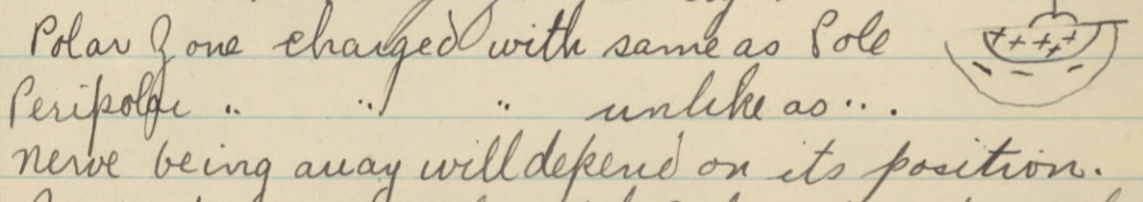 Polar Zone charged with same as Pole
Peripolar " " " unlike as " .
nerve being away will depend on its position.